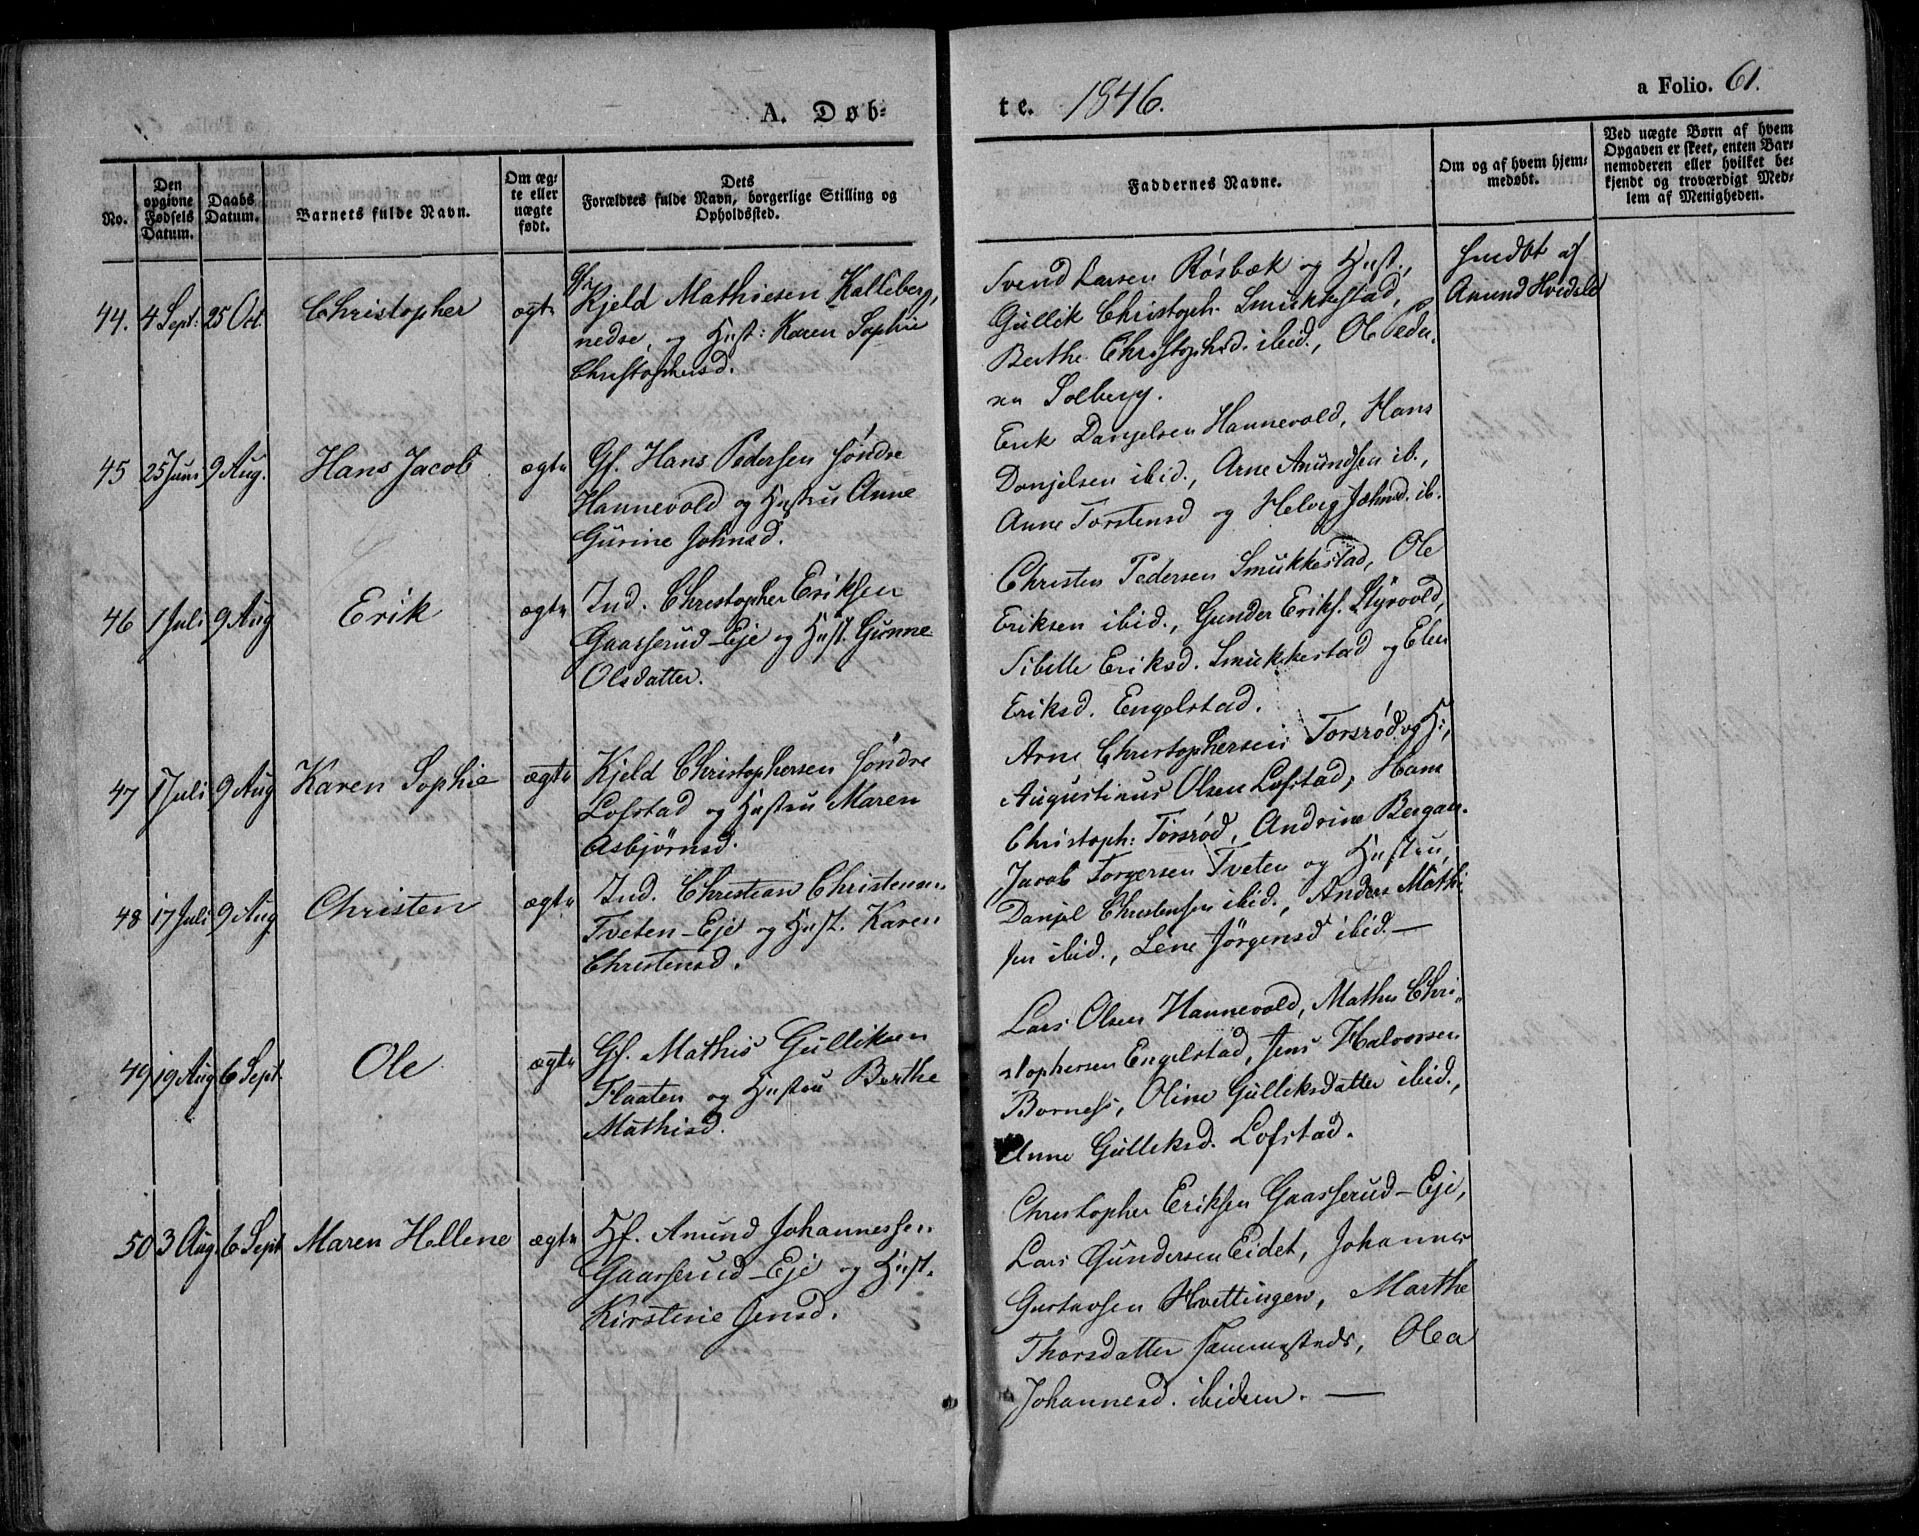 A. Døb-
No.
Den opgivne Fødsels Datum.
Daabs Datum.
Barnets fulde Navn.
Om ægte eller uægte født.
Dets
Forældres fulde Navn, borgerlige Stilling og
Opholdssted.
44. 4 Sept. 25 Oct. Christopher ægte
Gf.
Kjeld Mathiesen Kalleberg,
nedre, og Hust: Karen Sophie
Christophersd.
45 25 Juni 9 Aug. Hans Jacob ægte
Gf. Hans Pedersen søndre
Hannevold og Hustru Anne
Gurine Johnsd.
46 1 Juli 9 Aug Erik ægte
Ind. Christopher Eriksen
Gaasserud-Eje og Hust. Gunne
Olsdatter.
47 1 Juli 9 Aug Karen Sophie ægte
Kjeld Christophersen søndre
Lofstad og Hustru Maren
Asbjørnsd.
48 17 Juli 9 Aug Christen ægte
Ind. Christian Christensen
Tveten-Eje og Hust. Karen
Christensd.
49 19 Aug 6 Sept. Ole ægte
Gf. Mathis Gulliksen
Flaaten og Hustru Berthe
Mathisd.
50 3 Aug. 6 Sept Maren Hellene ægte
Hf. Anund Johannessen
Gaasserud-Eje og Hust.
Kirstine Jensd.
te. 1846.
a Folio. 61.
Faddernes Navne.
Om og af hvem hjem-
medøbt.
Ved uægte Børn af hvem
Opgaven er skeet, enten Bar-
nemoderen eller hvilket be-
kjendt og troværdigt Med-
lem af Menigheden.
Svend Larsen Røsbæk og Hust.,
Gullik Christoph. Smukkestad,
Berthe Christophsd. ibid., Ole Peder-
sen Solberg.
hmdbt af
Anund Hvidsld
Erik Danjelsen Hannevold, Hans
Danjelsen ibid., Arne Anundsen ib.,
Anne Torstensd og Helvig Johnsd. ib.
Christen Pedersen Smukkestad, Ole
Eriksen ibid., Gunder Eriks. Styrvold,
Sibille Eriksd. Smukkestad og Elen
Eriksd. Engelstad.
Arne Christophersen Torsrød og H.,
Augustinus Olsen Lofstad, Hans
Christoph: Torsrød, Andrine Bergan.
Jacob Torgersen Tveten og Hustru,
Danjel Christensen ibid., Anders Mathi-
sen ibid., Lene Jörgensd ibid.—
Lars Olsen Hannevold, Mathis Chri-
stophersen Engelstad, Jens Halvorsen
Borness, Oline Gulliksdatter ibid.,
Anne Gulliksd. Lofstad.
Christopher Eriksen Gaasserud-Eje,
Lars Gundersen Eidet, Johannes
Gustavsen Hvittingen, Marthe
Thorsdatter sammesteds, Olea
Johannesd. ibidem. —